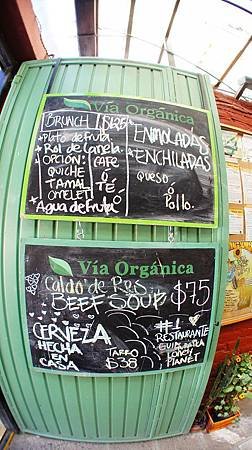 Vía Orgánica
BRUNCH / $125
* Plato de fruta
* Rol de Canela
* OPCIÓN:
QUICHE
TAMAL
OMELET
CAFE
Ó
TÉ
* Agua de fruta
ENMOLADAS
ENCHILADAS
QUESO
ó
Pollo
Vía Orgánica
Caldo de Res
BEEF SOUP $75
CERVEZA
HECHA
EN
CASA
TARRO
$38
#1
RESTAURANTE
LONELY
PLANET